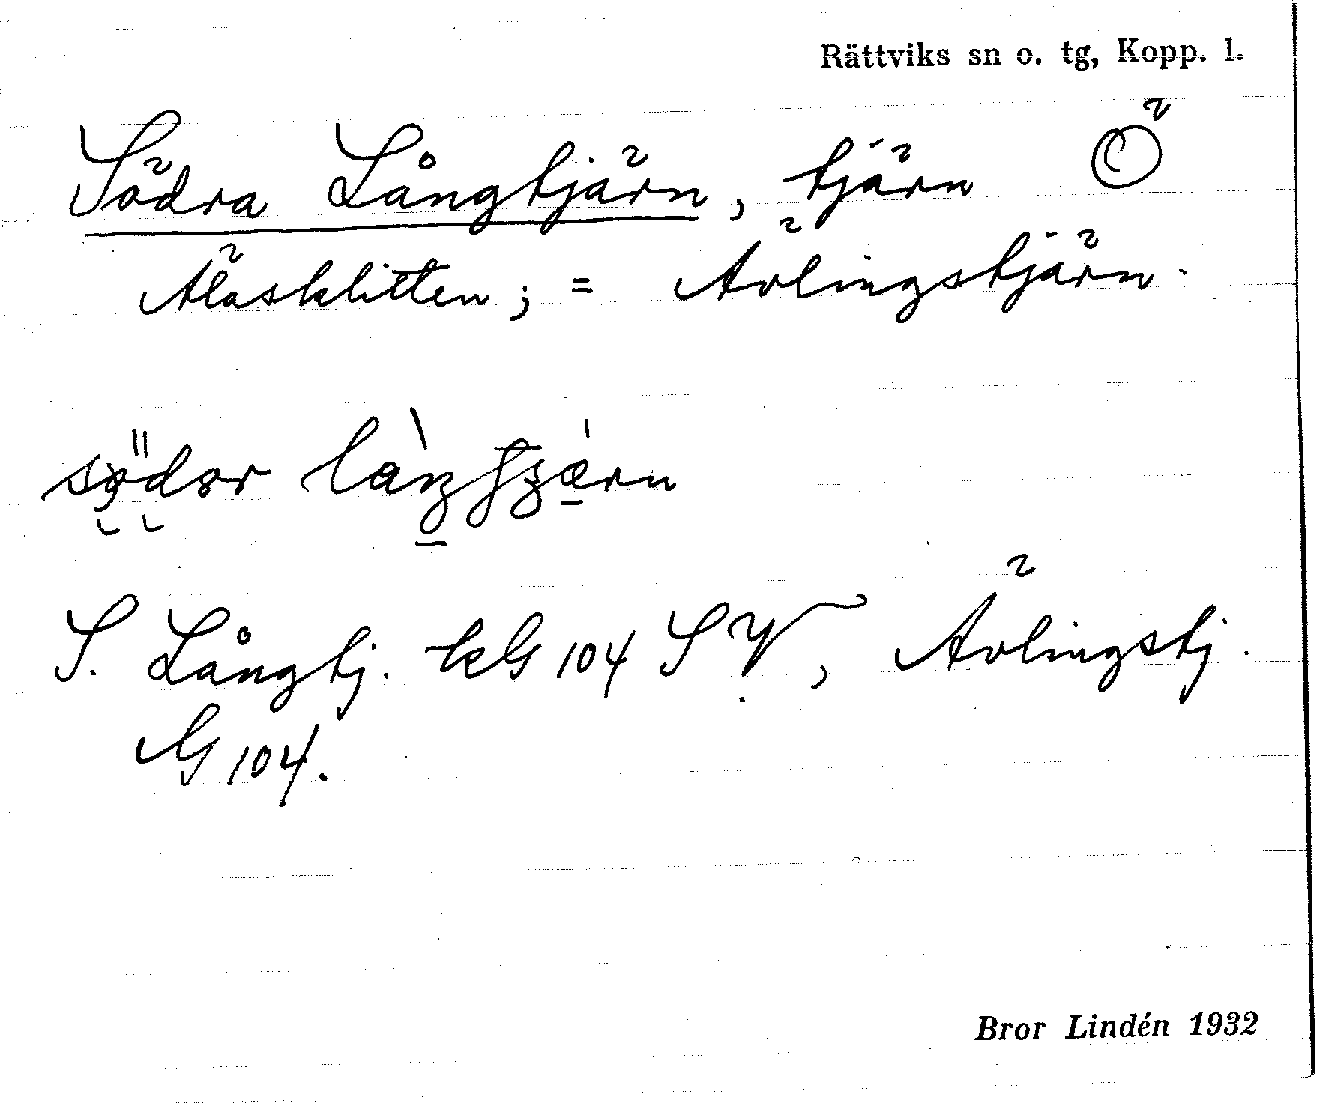 Rättviks sn o. tg, Kopp. l.
Södra Långtjärn, tjärn Ö
Älasklitten; = Ävlingstjärn.
S. Långtj. kG 104 SV, Ävlingstj.
G 104.
Bror Lindén 1932